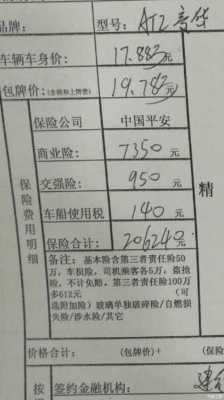 品牌: 型号: ATL 豪华
车辆车身价: 17.883元
包牌价:(含税和上牌费) 19.783元
保险公司 中国平安
商业险: 7350元
交强险: 950元
车船使用税 140元
保险合计: 206240元
保险费用明细
备注: 基本险含第三者责任险50
万、车损险, 司机乘客各5万; 盗抢
险, 不计免赔, 第三者责任险100万
多612元 (可
选附加险) 玻璃单独破碎险/自燃损
失险/涉水险/其它
精
价格合计: (包牌价)+ (保险
按 签约金融机构: